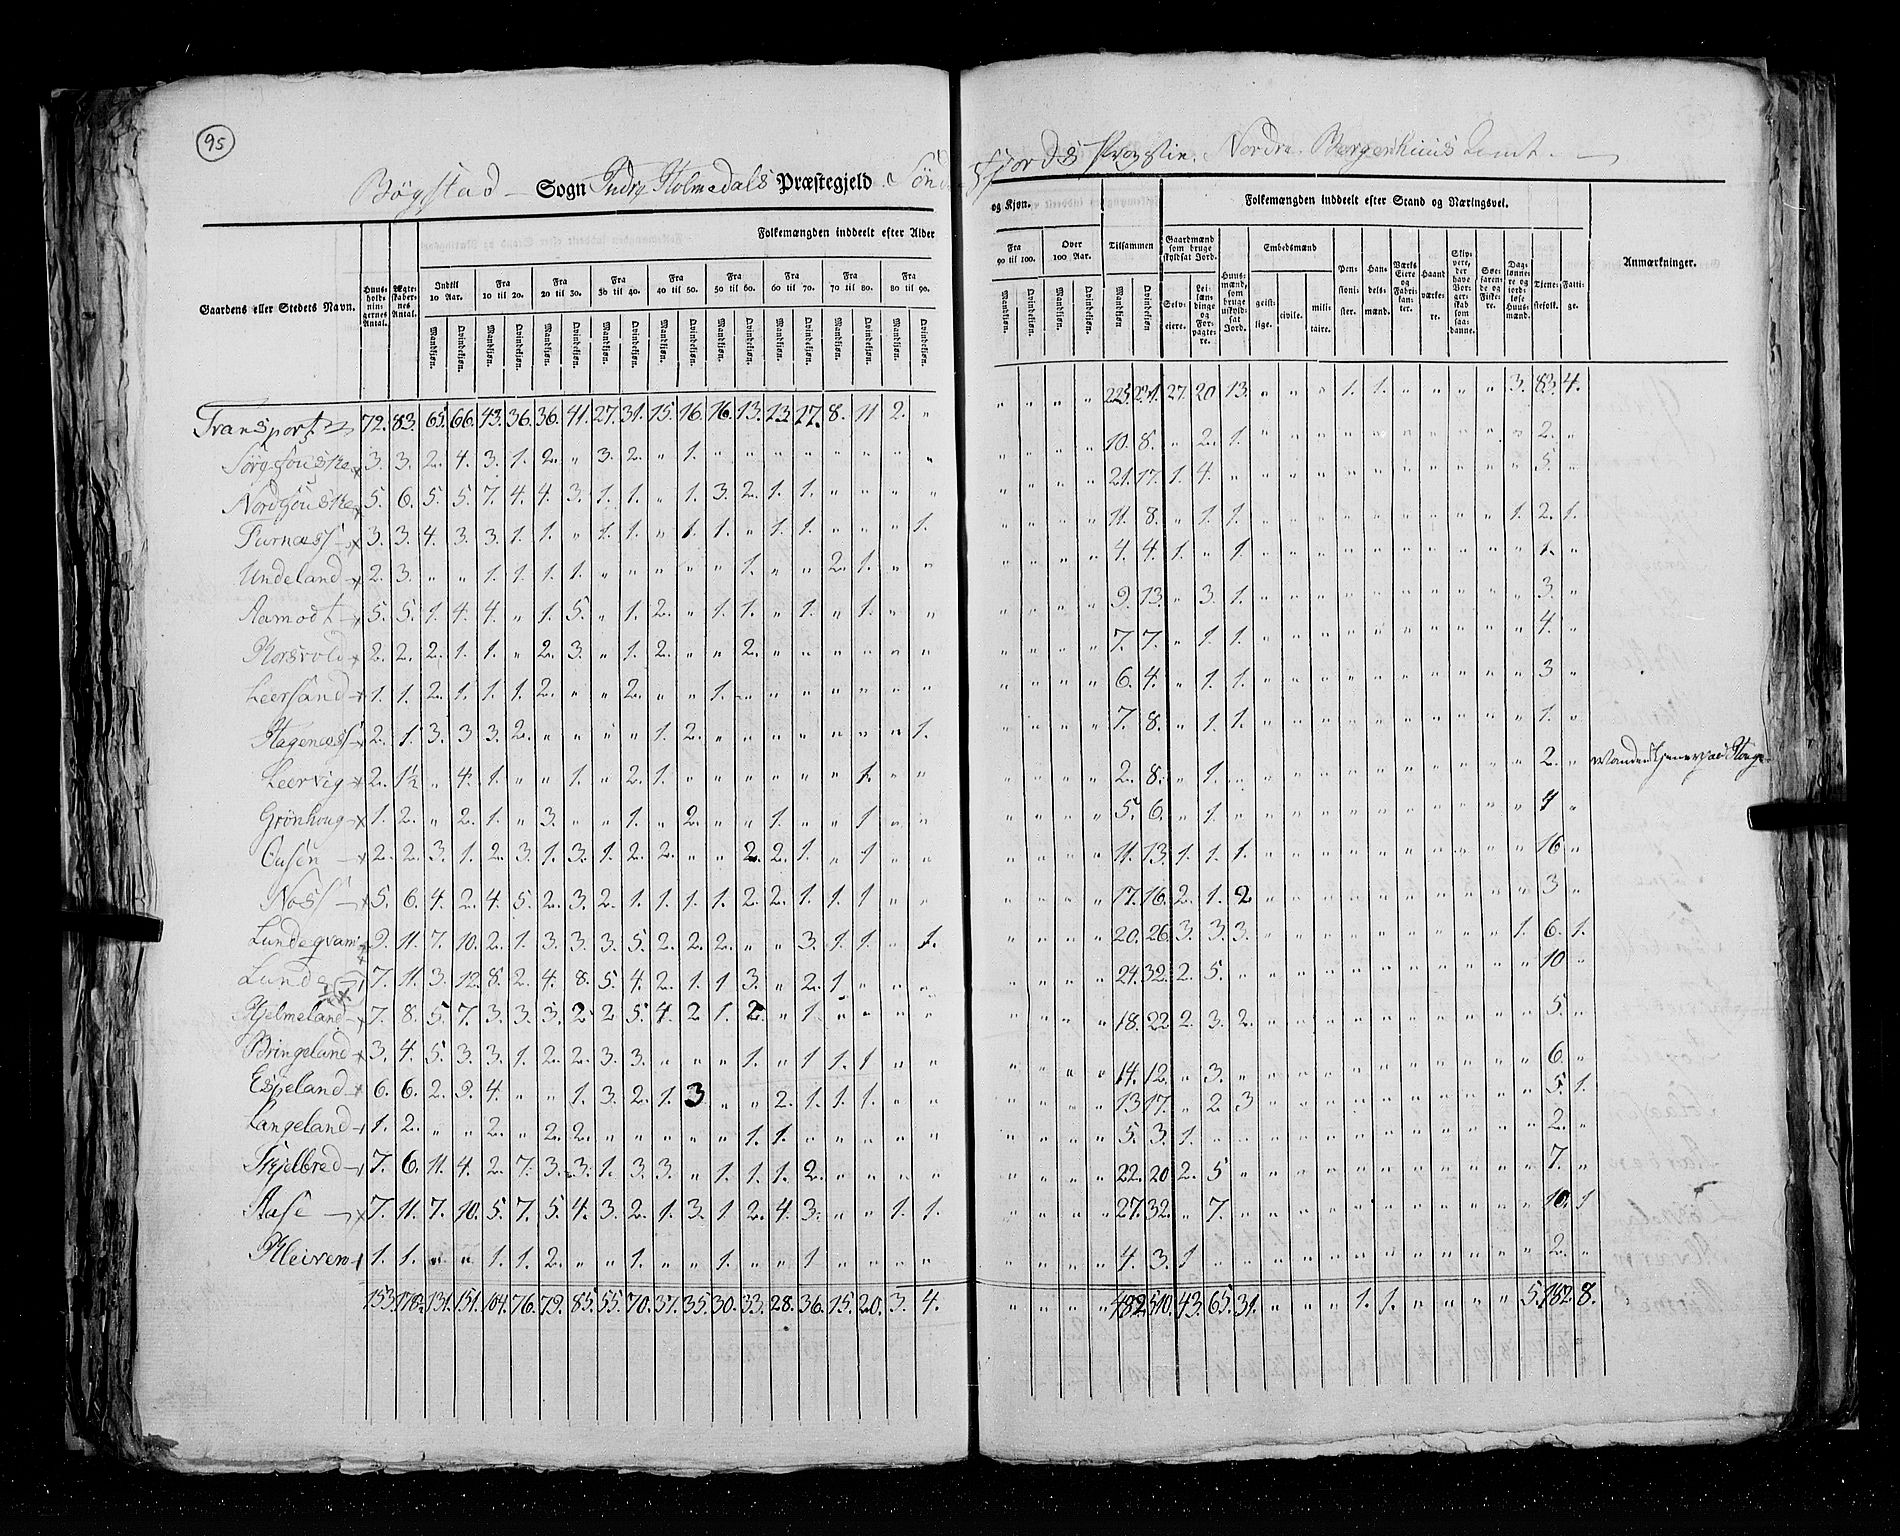 95
Bögstad Sogn Indre Holmedals Præstegjeld Söndfjords Provstie. Nordre Bergenhuus Amt.
Folkemængden inddeelt efter Alder og Kjøn.
Folkemængden inddeelt efter Stand og Næringsvei.
Gaardens eller Stedets Navn.
Huusholdningernes Antal.
Ægteskabernes Antal.
Indtil 10 Aar. Fra 10 til 20. Fra 20 til 30. Fra 30 til 40. Fra 40 til 50. Fra 50 til 60. Fra 60 til 70. Fra 70 til 80. Fra 80 til 90. Fra 90 til 100. Over 100 Aar. Tilsammen
Mandkjøn. Qvindekjøn.
Gaardmænd som bruge skyldsat Jord. Selveiere. Leilændinge og Forpagtere.
Huusmænd, som bruge uskyldsat Jord.
Embedsmænd geistlige. civile. militaire.
Pensionister. Handelsmænd. Værks Eiere og Fabrikanter. Haandværkere.
Skippere, der have Borgerskab som saadanne.
Søefarende og Fiskere.
Daglønnere og jordløse Huusmænd.
Tjenestefolk. Fattige.
Anmærkninger.
Transport 72. 83. 65. 66. 43. 36. 36. 41. 27. 31. 15. 16. 16. 13. 13. 17. 8. 11 2. " " " " " 225. 231. 27. 20 13. " " " 1. 1. " " " " 3. 83. 4.
3. 3. 2. 4. 3. 1. 2. " 3. 2. " 1. " " " " " " " " " " " " 10. 8. " 2. 1. " " " " " " " " " " 2. "
5. 6. 5. 5. 7. 4. 4. 3. 1. 1. " 1. 3. 2. 1. 1. " " " " " " " " 21. 17. 1. 4. " " " " " " " " " " " 5. "
Furnæss 3. 3. 4. 3. 3. 1. 1. " 1. 1. " 1. 1. " 1. 1. " " " 1. " " " " 11. 8. " 1. 1. " " " " " " " " " 1. 2. 1.
Undeland 2. 3. " " 1. 1. 1. 1. " " " " " 1. " " 2. 1. " " " " " " 4. 4. 1. " 1. " " " " " " " " " " 1. "
Aamodt 5. 5. 1. 4. 4. " 1. 5. " 1. 2. " 1. 1. " 1. " 1. " " " " " " 9. 13. " 3. 1. " " " " " " " " " " 3. "
Korsvold 2. 2. 2. 1. 1. " 2. 3. " 1. 2. " " 2. " " " " " " " " " " 7. 7. " 1. 1. " " " " " " " " " " 4. "
Leersand 1. 1. 2. 1. 1. 1. 2. " " 2. " " 1. " " " " " " " " " " " 6. 4. " 1. 1. " " " " " " " " " " 3 "
Hagenæss 2. 1. 3. 3 3. 2. " " " " 1. 2. " " " " " " " 1. " " " " 7. 8. " 1. 1. " " " " " " " " " " 1. "
Leervig 2. 1½ " 4. 1. " " 1. " 2. 1. " " " " " " 1. " " " " " " 2. 8. " 1. " " " " " " " " " " " 2. "
Grönhoug 1. 2. " 2. 1. " 3. " " 1. " 2. " " 1. " " 1 " " " " " " 5. 6. " 1. " " " " " " " " " " " 4 "
2. 2. 3. 1. 2. 3. 1. 3. 1. 2. 2. " " 2. 2. 1. " 1 " " " " " " 11. 13. 1. 1. 1. " " " " " " " " " " 16 "
Noss 5. 6. 4. 2. 4. 5. 2. 3. 2. 1. 1. 1. 1. 2. 2. 1. 1. 1 " " " " " " 17. 16. 2. 1. 2 " " " " " " " " " " 3 "
Lundeqvam 9. 11. 7. 10. 2. 1. 3. 3. 3. 5. 2. 2. 2. " " 3. 1. 1. " 1. " " " " 20. 26. 3. 3. 3. " " " " " " " " " 1. 6. 1.
Lunde 7. 11. 3. 12. 8. 2. 4. 8. 5. 4. 2. 1. 1 3. " 2. 1 " " " " " " " 24. 32. 2. 5. " " " " " " " " " " " 10 "
Hjelmeland 7. 8. 5. 7. 3. 3. 3. 2 2 5. 4. 2 1. 2. " 1. " " " " " " " " 18. 22 2. 3. 2. " " " " " " " " " " 5. "
Bringeland 3. 4. 5. 3. 3. 1. 2. 2. 3. 3. " " " 1. " 1. 1. 1 " " " " " " 14. 12. " 3. " " " " " " " " " " " 6. "
Espeland 6. 6. 2. 9. 4. " " 1. 3. 2. 1. 3 " " 2. 1. 1. 1. " " " " " " 13 17. " 2 3 " " " " " " " " " " 5. 1.
Langeland 1. 2. " " 2. " 2. 2. " " " " " 1. 1. " " " " " " " " " 5. 3. 1. " " " " " " " " " " " " 2. "
Skjelbred 7. 6. 11. 4. 2. 7. 3. 3. 1. 3. 3. " 1. 1. 1. 2. " " " " " " " " 22. 20 2. 5 " " " " " " " " " " " 7. "
Aase 7. 11. 7. 10. 5. 7. 5. 4. 3. 2. 1. 3. 1. 2. 4. 3. " " 1. 1. " " " " 27. 32. " 7. " " " " " " " " " " " 10. 1
Kleiven 1. 1. " " 1. 1. 2. " " 1. " " 1. " " 1 " " " " " " " " 4. 3. 1 " " " " " " " " " " " " 2. "
153. 178½ 131. 151. 104. 76. 79. 85. 55. 70. 37. 35. 30. 33. 28. 36. 15. 20. 3. 4. " " " " 482 510. 43. 65. 31. " " " 1. 1. " " " " 5. 182. 8.